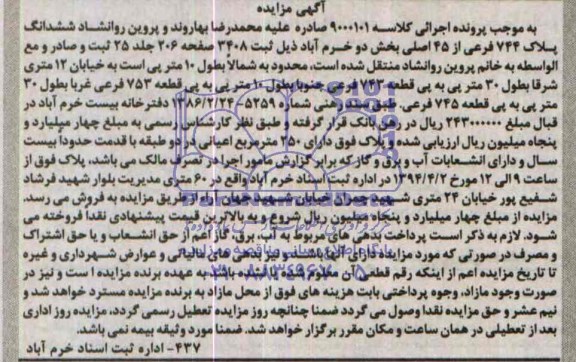 آگهی مزایده
به موجب پرونده اجرائی کلاسه ۹۰۰۰۱۰۱ صادره علیه محمدرضا بهاروند و پروین روانشاد ششدانگ
پلاک ۷۴۴ فرعی از ۴۵ اصلی بخش دو خرم آباد ذیل ثبت ۳۴۰۸ صفحه ۲۰۶ جلد ۲۵ ثبت و صادر و مع
الواسطه به خانم پروین روانشاد منتقل شده است، محدود به شمالا بطول ۱۰ متر پی است به خیابان ۱۲ متری
شرقا بطول ۳۰ متر پی به پی قطعه ۷۴۳ فرعی جنوبا بطول ۱۰ متر پی به پی قطعه ۷۵۳ فرعی غربا بطول ۳۰
متر پی به پی قطعه ۷۴۵ فرعی. طبق سند رهنی شماره ۵۲۵۹-۱۳۸۶/۲/۲۴ دفترخانه بیست خرم آباد در
قبال مبلغ ۲۴۳۰۰۰۰۰۰ ریال در رهن بانک قرار گرفته و طبق نظر کارشناس رسمی به مبلغ چهار میلیارد و
پنجاه میلیون ریال ارزیابی شده و پلاک فوق دارای ۲۵۰ مترمربع اعیانی در دو طبقه با قدمت حدودا بیست
سال و دارای انشعابات آب و برق و گاز که برابر گزارش مامور اجرا در تصرف مالک می باشد، پلاک فوق از
ساعت ۹ الی ۱۲ مورخ ۱۳۹۴/۴/۲ در اداره ثبت اسناد خرم آباد واقع در ۶۰ متری مدیریت بلوار شهید فرشاد
شفیع پور خیابان ۲۴ متری شهید چمران خیابان شهید جهان آراء از طریق مزایده به فروش می رسد.
مزایده از مبلغ چهار میلیارد و پنجاه میلیون ریال شروع و به بالاترین قیمت پیشنهادی نقدا فروخته می
شود. لازم به ذکر است پرداخت بدهی های مربوط به آب، برق، گاز اعم از حق انشعاب و یا حق اشتراک
و مصرف در صورتی که مورد مزایده دارای آنها باشد و نیز بدهی های مالیاتی و عوارض شهرداری و غیره
تا تاریخ مزایده اعم از اینکه رقم قطعی آن معلوم شده یا نشده باشد به عهده برنده مزایده است و نیز در
صورت وجود مازاد، وجوه پرداختی بابت هزینه های فوق از محل مازاد به برنده مزایده مسترد خواهد شد و
نیم عشر و حق مزایده نقدا وصول می گردد ضمنا چنانچه روز مزایده تعطیل رسمی گردد، مزایده روز اداری
بعد از تعطیلی در همان ساعت و مکان مقرر برگزار خواهد شد. ضمنا مورد وثیقه بیمه نمی باشد.
۴۳۷- اداره ثبت اسناد خرم آباد